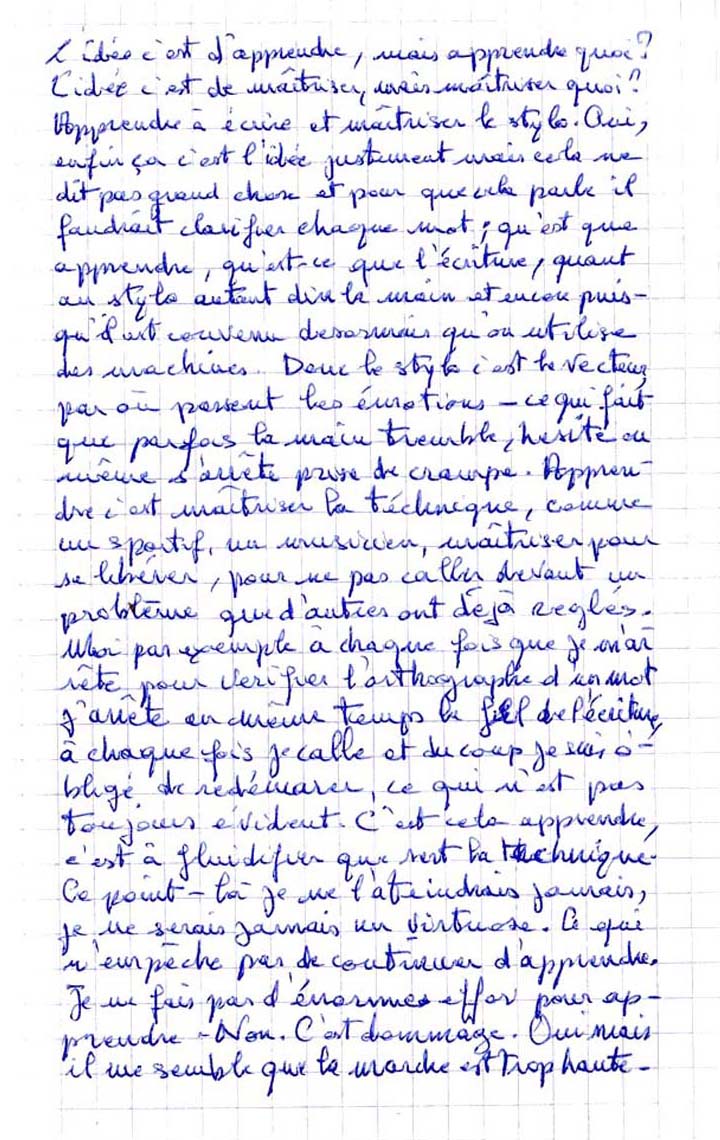 L'idée c'est d'apprendre, mais apprendre quoi?
L'idée c'est de maîtriser, mais maîtriser quoi?
Apprendre à écrire et maîtriser le stylo. Oui,
enfin ça c'est l'idée justement mais cela ne
dit pas grand chose et pour que cela parle il
faudrait clarifier chaque mot; qu'est que
apprendre, qu'est-ce que l'écriture, quant
au stylo autant dire la main et encore puis-
qu'il est convenu desormais qu'on utilise
des machines. Donc le stylo c'est le vecteur,
par où passent les émotions - ce qui fait
que parfois la main tremble, hésite ou
même s'arrête prise de crampe. Appren-
dre c'est maîtriser la téchnique, comme
un sportif, un musicien, maîtriser pour
se libérer, pour ne pas caller devant un
problème que d'autres ont déjà reglés.
Moi par exemple à chaque fois que je m'ar
rête pour verifier l'orthographe d'un mot
j'arrête en même temps le fil de l'écriture,
à chaque fois je calle et du coup je suis o-
bligé de redémarer, ce qui n'est pas
toujours évident. C'est cela apprendre,
c'est à fluidifier que sert la technique.
Ce point-là je ne l'ateindrais jamais,
je ne serais jamais un virtuose. Ce qui
n'empêche pas de continuer d'apprendre.
Je ne fais pas d'énormes effor pour ap-
prendre - Non. C'est dommage. Oui mais
il me semble que la marche est trop haute -